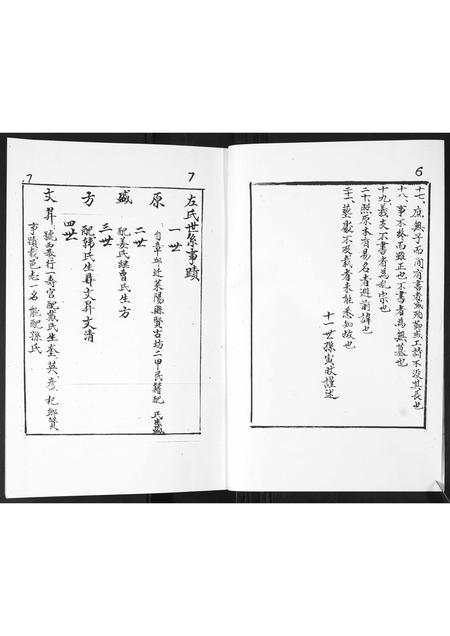 6
十七、庶無子而間有書者或殉節或工詩不没其長也
十八、事不终而雖正也不書者為無墓也
十九義支不書者為乱宗也
二十、照原本有易名者避前諱也
二十一、墓嶽不没载者未能悉知故也
十一世孫寅
謹述
7
左氏世系事蹟
一世
原
自章邱迁莱陽縣賢古坊二甲民籍配
氏生盛
二世
盛
配姜氏继曹氏生方
三世
方
配韩氏生昇文昇文清
四世
文昇
號西泰行一壽官配戴氏生奎英彦杞鄉賢
事蹟载邑志一名能配孫氏
7